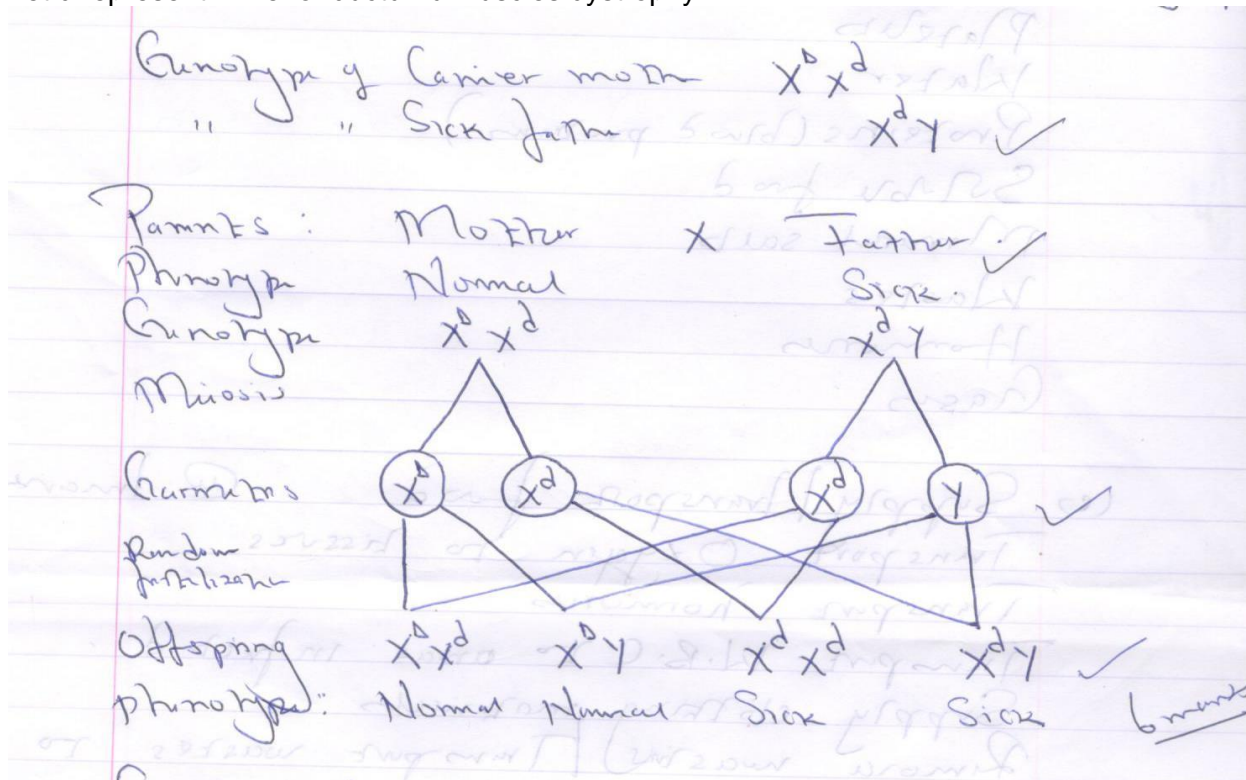 Genotype of Carrier mother XᴰXᵈ
" " Sick father XᵈY ✓
Parents: Mother X Father ✓
Phenotype Normal Sick.
Genotype XᴰXᵈ XᵈY
Meiosis
Gametes Xᴰ Xᵈ Xᵈ Y ✓
Random
fertilization
Offspring XᴰXᵈ XᴰY XᵈXᵈ XᵈY ✓
phenotype: Normal Normal Sick Sick 6 marks